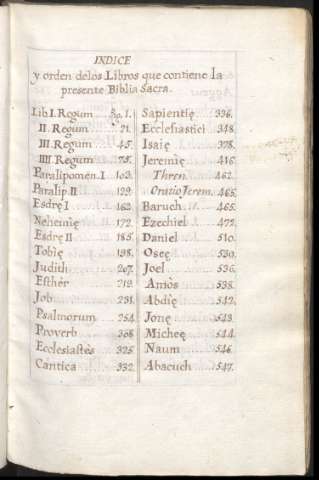 INDICE
y orden delos Libros que contiene la
presente Biblia Sacra.
Lib I. Regum Pag. 1.
II. Regum 21.
III. Regum 45.
IIII. Regum 75.
Paralipomen. I 103.
Paralip II 129.
Esdrę I 162.
Nehemię 172.
Esdrę II 185.
Tobię 198.
Judith 207.
Esther 219.
Job 231.
Psalmorum 254.
Proverb 368.
Ecclesiastès 325.
Cantica 332.
Sapientię 336.
Ecclesiastici 348.
Isaię 378.
Jeremię 416.
Thren. 462.
Oratio Jerem. 465.
Baruch 465.
Ezechiel 472.
Daniel 510.
Oseę 530.
Joel 536.
Amòs 538.
Abdię 542.
Jonę 543.
Micheę 544.
Naum 546.
Abacuch 547.